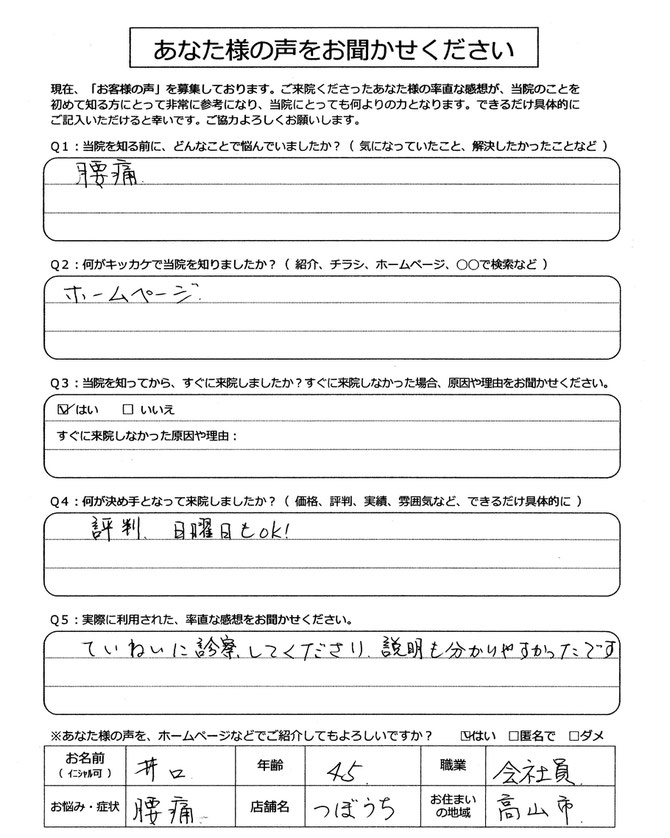 あなた様の声をお聞かせください
現在、「お客様の声」を募集しております。ご来院くださったあなた様の率直な感想が、当院のことを
初めて知る方にとって非常に参考になり、当院にとっても何よりの力となります。できるだけ具体的に
ご記入いただけると幸いです。ご協力よろしくお願いします。
Q1：当院を知る前に、どんなことで悩んでいましたか？（ 気になっていたこと、解決したかったことなど ）
腰痛.
Q2：何がキッカケで当院を知りましたか？（ 紹介、チラシ、ホームページ、〇〇で検索など ）
ホームページ.
Q3：当院を知ってから、すぐに来院しましたか？すぐに来院しなかった場合、原因や理由をお聞かせください。
☑はい □ いいえ
すぐに来院しなかった原因や理由：
Q4：何が決め手となって来院しましたか？（ 価格、評判、実績、雰囲気など、できるだけ具体的に ）
評判、日曜日もOK!
Q5：実際に利用された、率直な感想をお聞かせください。
ていねいに診察してくださり、説明も分かりやすかったです
※あなた様の声を、ホームページなどでご紹介してもよろしいですか？ ☑はい □匿名で □ダメ
お名前（ ｲﾆｼｬﾙ可 ） 井口 年齢 45 職業 会社員
お悩み・症状 腰痛 店舗名 つぼうち お住まいの地域 高山市